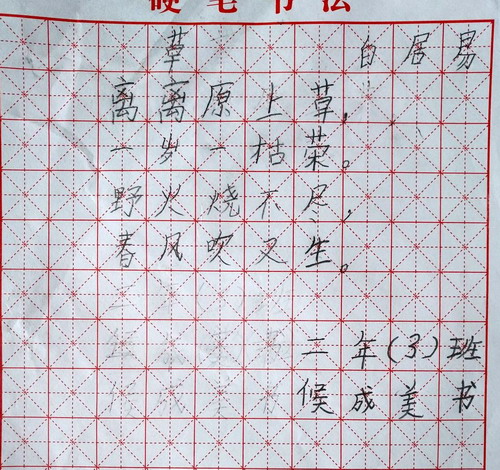 硬笔书法
草 白居易
离离原上草，
一岁一枯荣。
野火烧不尽，
春风吹又生。
二年(3)班
候成美书